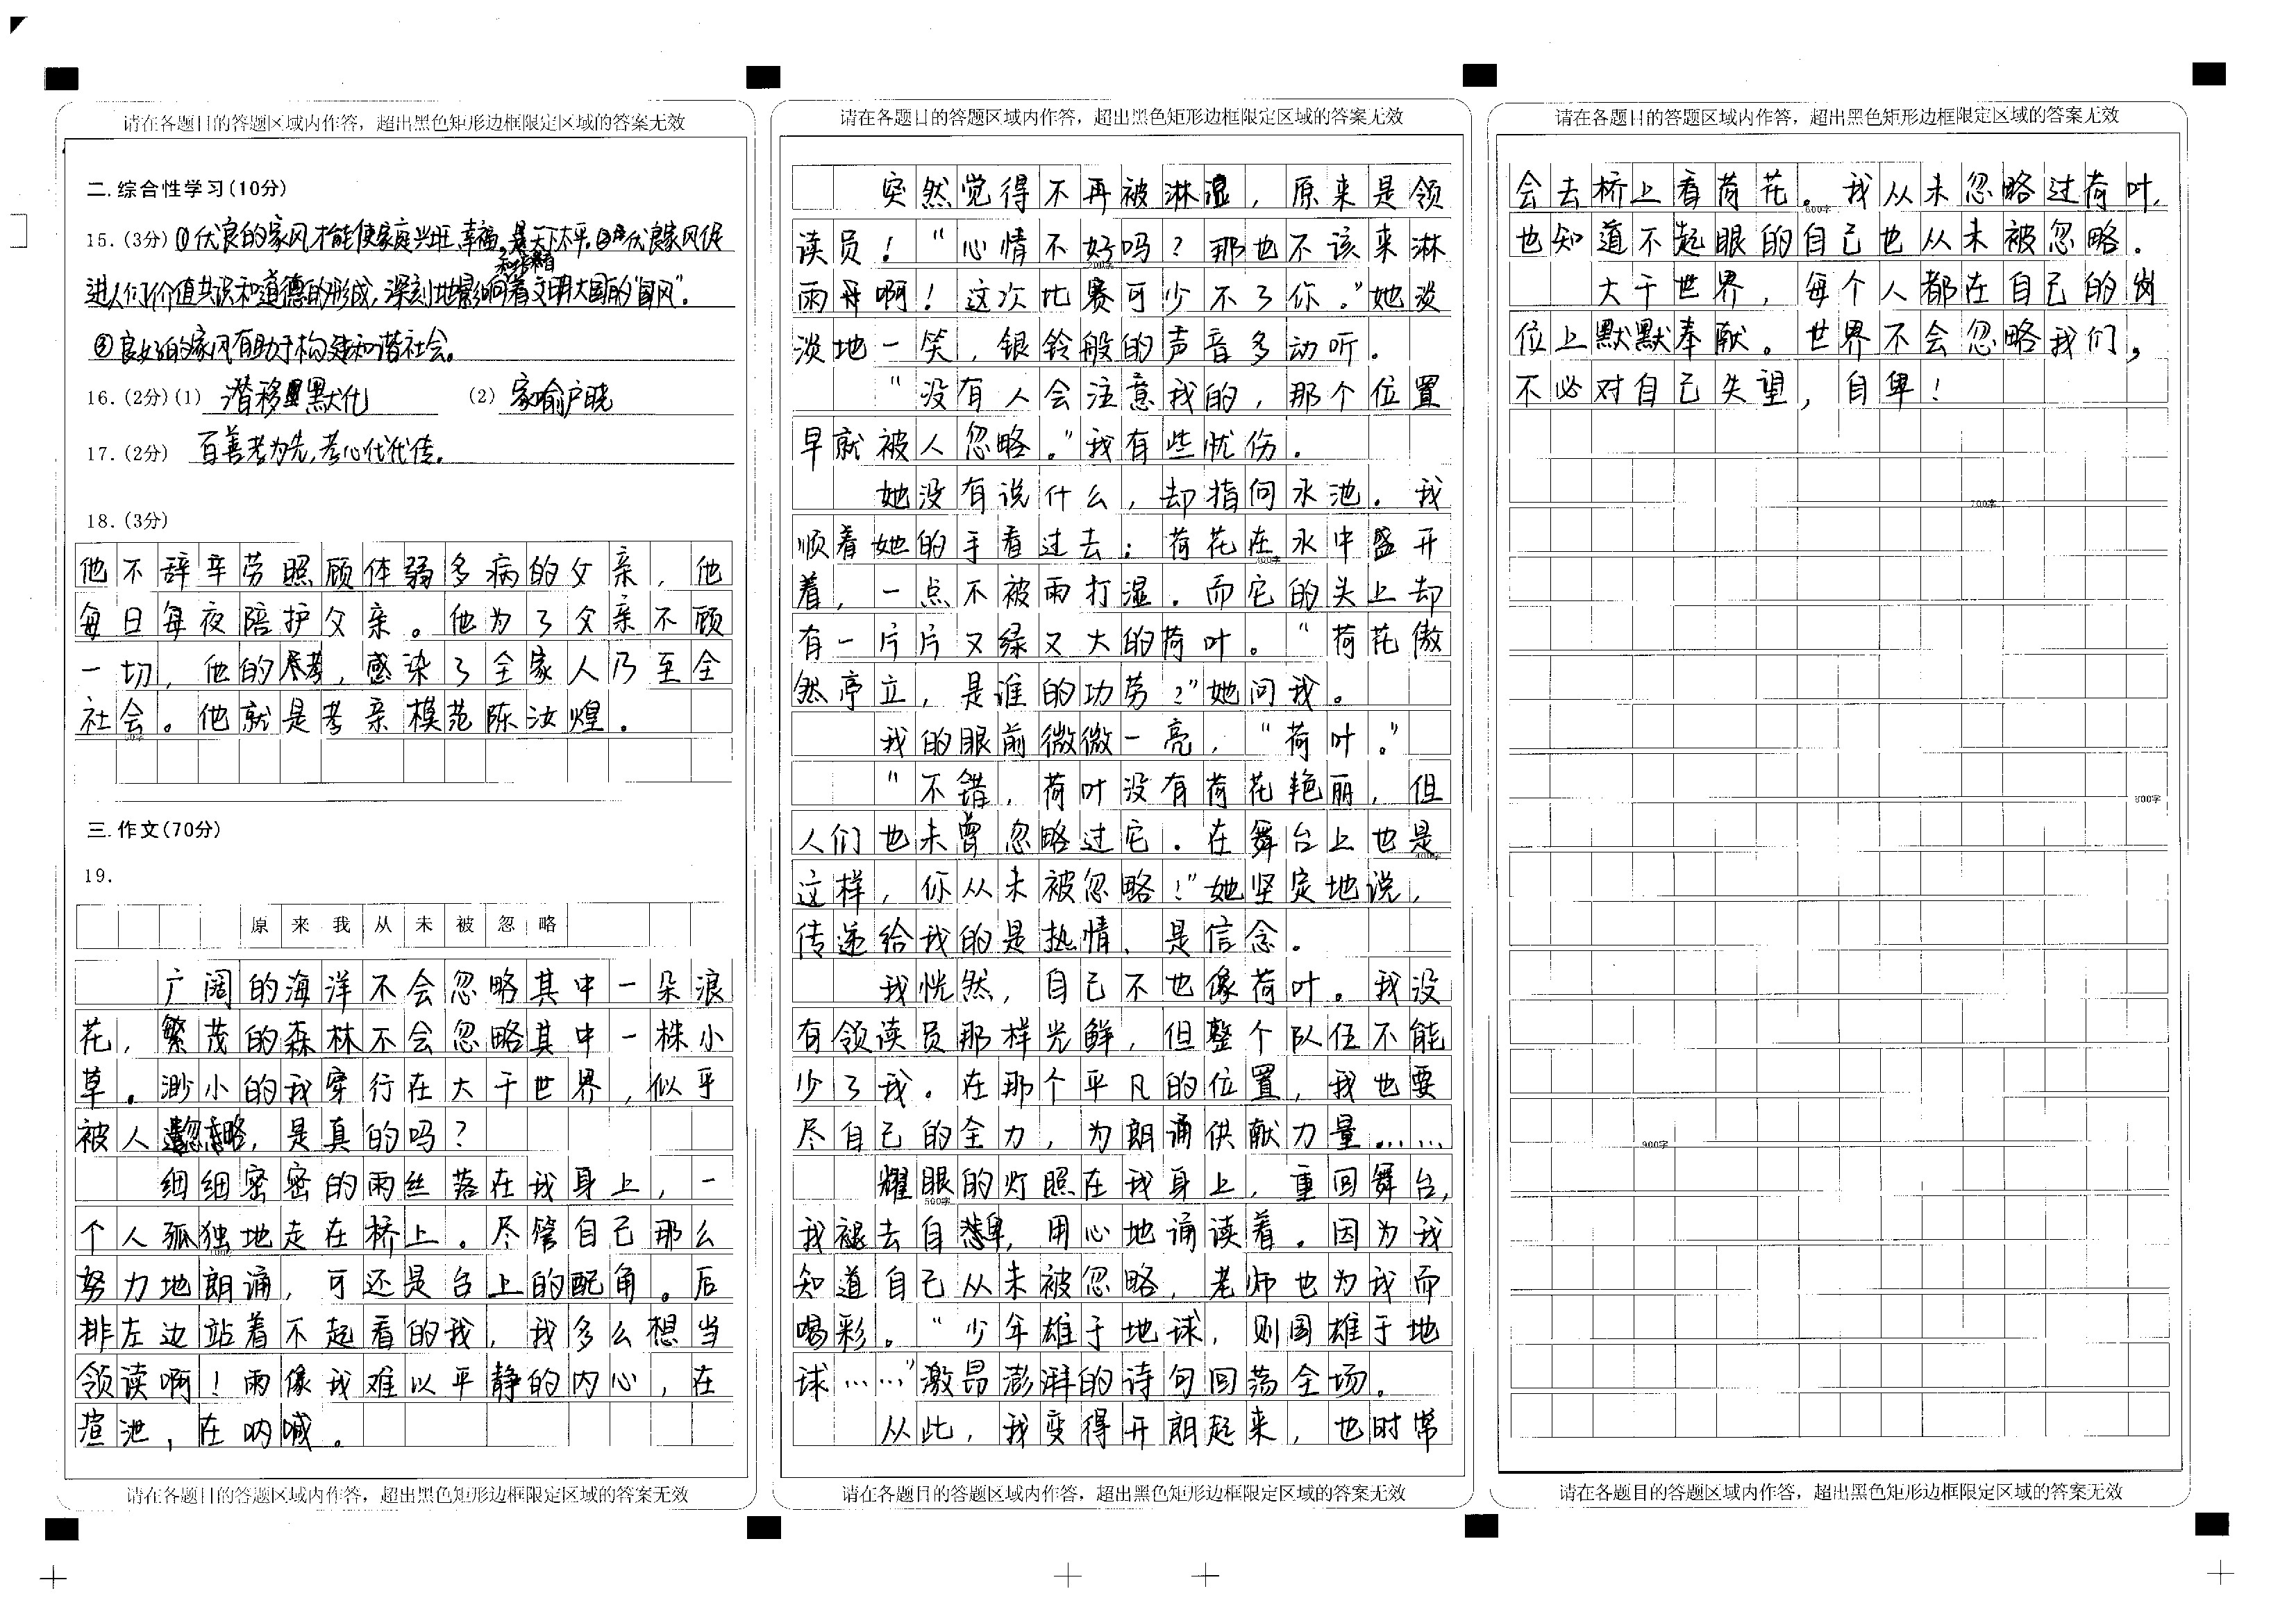 请在各题目的答题区域内作答，超出黑色矩形边框限定区域的答案无效
二.综合性学习(10分)
15.(3分)①优良的家风才能使家庭兴旺,幸福。是天下太平。②优良家风促
进人们价值共识和道德的形成,深刻地影响着文明大国的“国风”。
③良好的家风有助于构建和谐社会。
16.(2分)(1) 潜移默化 (2) 家喻户晓
17.(2分) 百善孝为先,孝心代代传。
18.(3分)
他不辞辛劳照顾体弱多病的父亲，他
每日每夜陪护父亲。他为了父亲不顾
一切，他的孝，感染了全家人乃至全
社会。他就是孝亲模范陈汝煌.
三.作文(70分)
19.
原来我从未被忽略
广阔的海洋不会忽略其中一朵浪
花，繁茂的森林不会忽略其中一株小
草.渺小的我穿行在大千世界,似乎
被人忽略,是真的吗?
细细密密的雨丝落在我身上,一
个人孤独地走在桥上。尽管自己那么
努力地朗诵,可还是台上的配角。后
排左边站着不起看的我,我多么想当
领读啊!雨像我难以平静的内心,在
渲泄,在呐喊。
请在各题目的答题区域内作答，超出黑色矩形边框限定区域的答案无效
请在各题目的答题区域内作答，超出黑色矩形边框限定区域的答案无效
突然觉得不再被淋湿,原来是领
读员!“心情不好吗?那也不该来淋
雨啊!这次比赛可少不了你。”她淡
淡地一笑,银铃般的声音多动听.
“没有人会注意我的,那个位置
早就被人忽略。”我有些忧伤.
她没有说什么,却指向水池.我
顺着她的手看过去:荷花在水中盛开
着,一点不被雨打湿.而它的头上却
有一片片又绿又大的荷叶。“荷花傲
然亭立,是谁的功劳?”她问我。
我的眼前微微一亮,“荷叶。”
“不错,荷叶没有荷花艳丽,但
人们也未曾忽略过它.在舞台上也是
这样,你从未被忽略!”她坚定地说,
传递给我的是热情、是信念.
我恍然,自己不也像荷叶。我没
有领读员那样光鲜,但整个队伍不能
少了我.在那个平凡的位置,我也要
尽自己的全力,为朗诵供献力量……
耀眼的灯照在我身上,重回舞台,
我褪去自卑,用心地诵读着.因为我
知道自己从未被忽略,老师也为我而
喝彩。“少年雄于地球,则国雄于地
球……”激昂澎湃的诗句回荡全场.
从此,我变得开朗起来,也时常
请在各题目的答题区域内作答，超出黑色矩形边框限定区域的答案无效
请在各题目的答题区域内作答，超出黑色矩形边框限定区域的答案无效
会去桥上看荷花。我从未忽略过荷叶,
也知道不起眼的自己也从未被忽略.
大千世界,每个人都在自己的岗
位上默默奉献。世界不会忽略我们,
不必对自己失望,自卑!
700字
800字
900字
请在各题目的答题区域内作答，超出黑色矩形边框限定区域的答案无效